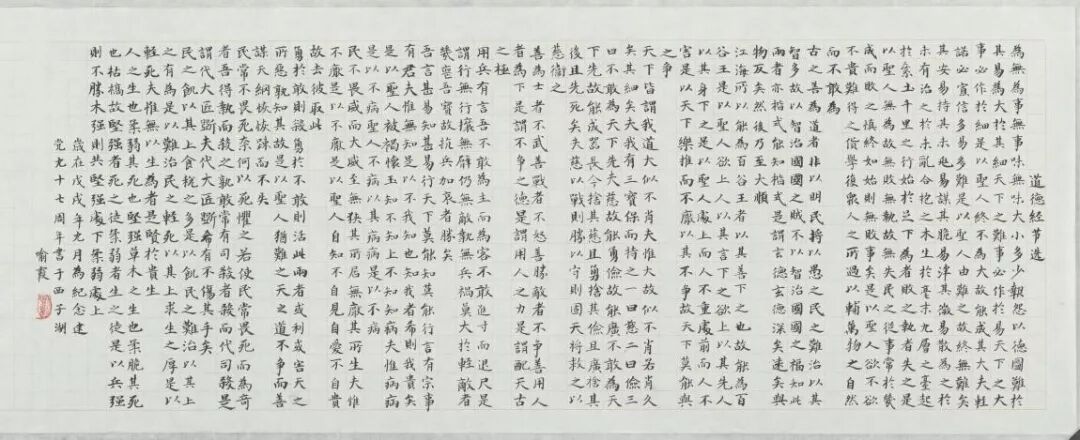 道德經节选
為無為事無事味無味大小多少報怨以德圖難於
其易為大於其細天下之難事必作於易天下之大
事必作於細是以聖人終不為大故能成其大夫輕
諾必宣信多易多難是以聖人由難之故終無難矣
其安易持其未兆易謀其脆易泮其微易散為之於
未有治之於未亂合抱之木生於毫末九層之臺起
於累土千里之行始於足下為者敗之執者失之是
以聖人無為故無敗無執故無失民之從事常於幾
成而敗之慎終如始則無敗事矣是以聖人欲不欲
不貴難得之貨學不學復眾人之所過以輔萬物之自然
而不敢為
古之善為道者非以明民將以愚之民之難治以其
智多故以智治國國之賊不以智治國國之福知此
兩者亦楷式能知楷式是謂玄德玄德深矣遠矣與
物反矣然後乃至大順
江海所以能為百谷王者以其善下之也故能為百
谷王是以聖人欲上人以其言下之欲上其先人
以其身下之是以聖人處上而人不重處前而人不
害是以天下樂推而不厭以其不爭故天下莫能與
之爭
天下皆謂我道大似不肖夫惟大故似不肖若肖久
矣其細矣夫我有三寶保而持之一曰慈二曰儉三
曰不敢為天下先夫慈故能勇儉故能廣不敢為天
下先故能成器長今捨其慈且勇捨其儉且廣捨其
後且先死矣夫慈以戰則勝以守則固天將救之以
慈衛之
善為士者不武善戰者不怒善勝敵者不爭善用人
者為下是謂不爭之德是謂用人之力是謂配天古
之極
用兵有言吾不敢為主而為客不敢進寸而退尺是
謂行無行攘無臂仍無敵執無兵禍莫大於輕敵者
幾喪吾寶故抗兵加哀者勝矣
吾言甚易知甚易行天下莫能知莫能行言有宗事
有君夫惟無知是以不我知也知我者希則我貴矣
是以聖人被褐懷玉知不知上不知知病夫惟病病
是以不病聖人不病以其病病是以不病
民不畏威而大威至無狹其所居無厭其所生夫惟
不厭是以不厭是以聖人自知不自見自愛不自貴
故去彼取此
勇於敢則殺勇於不敢則活此兩者或利或害天之
所惡孰知其故是以聖人猶難之天之道不爭而善
謀天網恢恢疎而不失
民常不畏死奈何以死懼之若使民常畏死而為奇
者吾得執而殺之孰敢常有司殺者殺而代司殺是
謂代大匠斲夫代大匠斲希有不傷其手矣
民之飢以其上食稅之多是以飢民之難治以其上
之有為是以難治民之輕死以其上求生之厚是以
輕死夫惟無以生為者是賢於貴生
人之生也柔弱其死也堅强草木之生也柔脆其死
也枯槁故堅强者死之徒柔弱者生之徒是以兵强
則不勝木强則共堅强處下柔弱處上
歲在戊戌年九月為紀念建
党九十七周年書于西子湖
喻霞